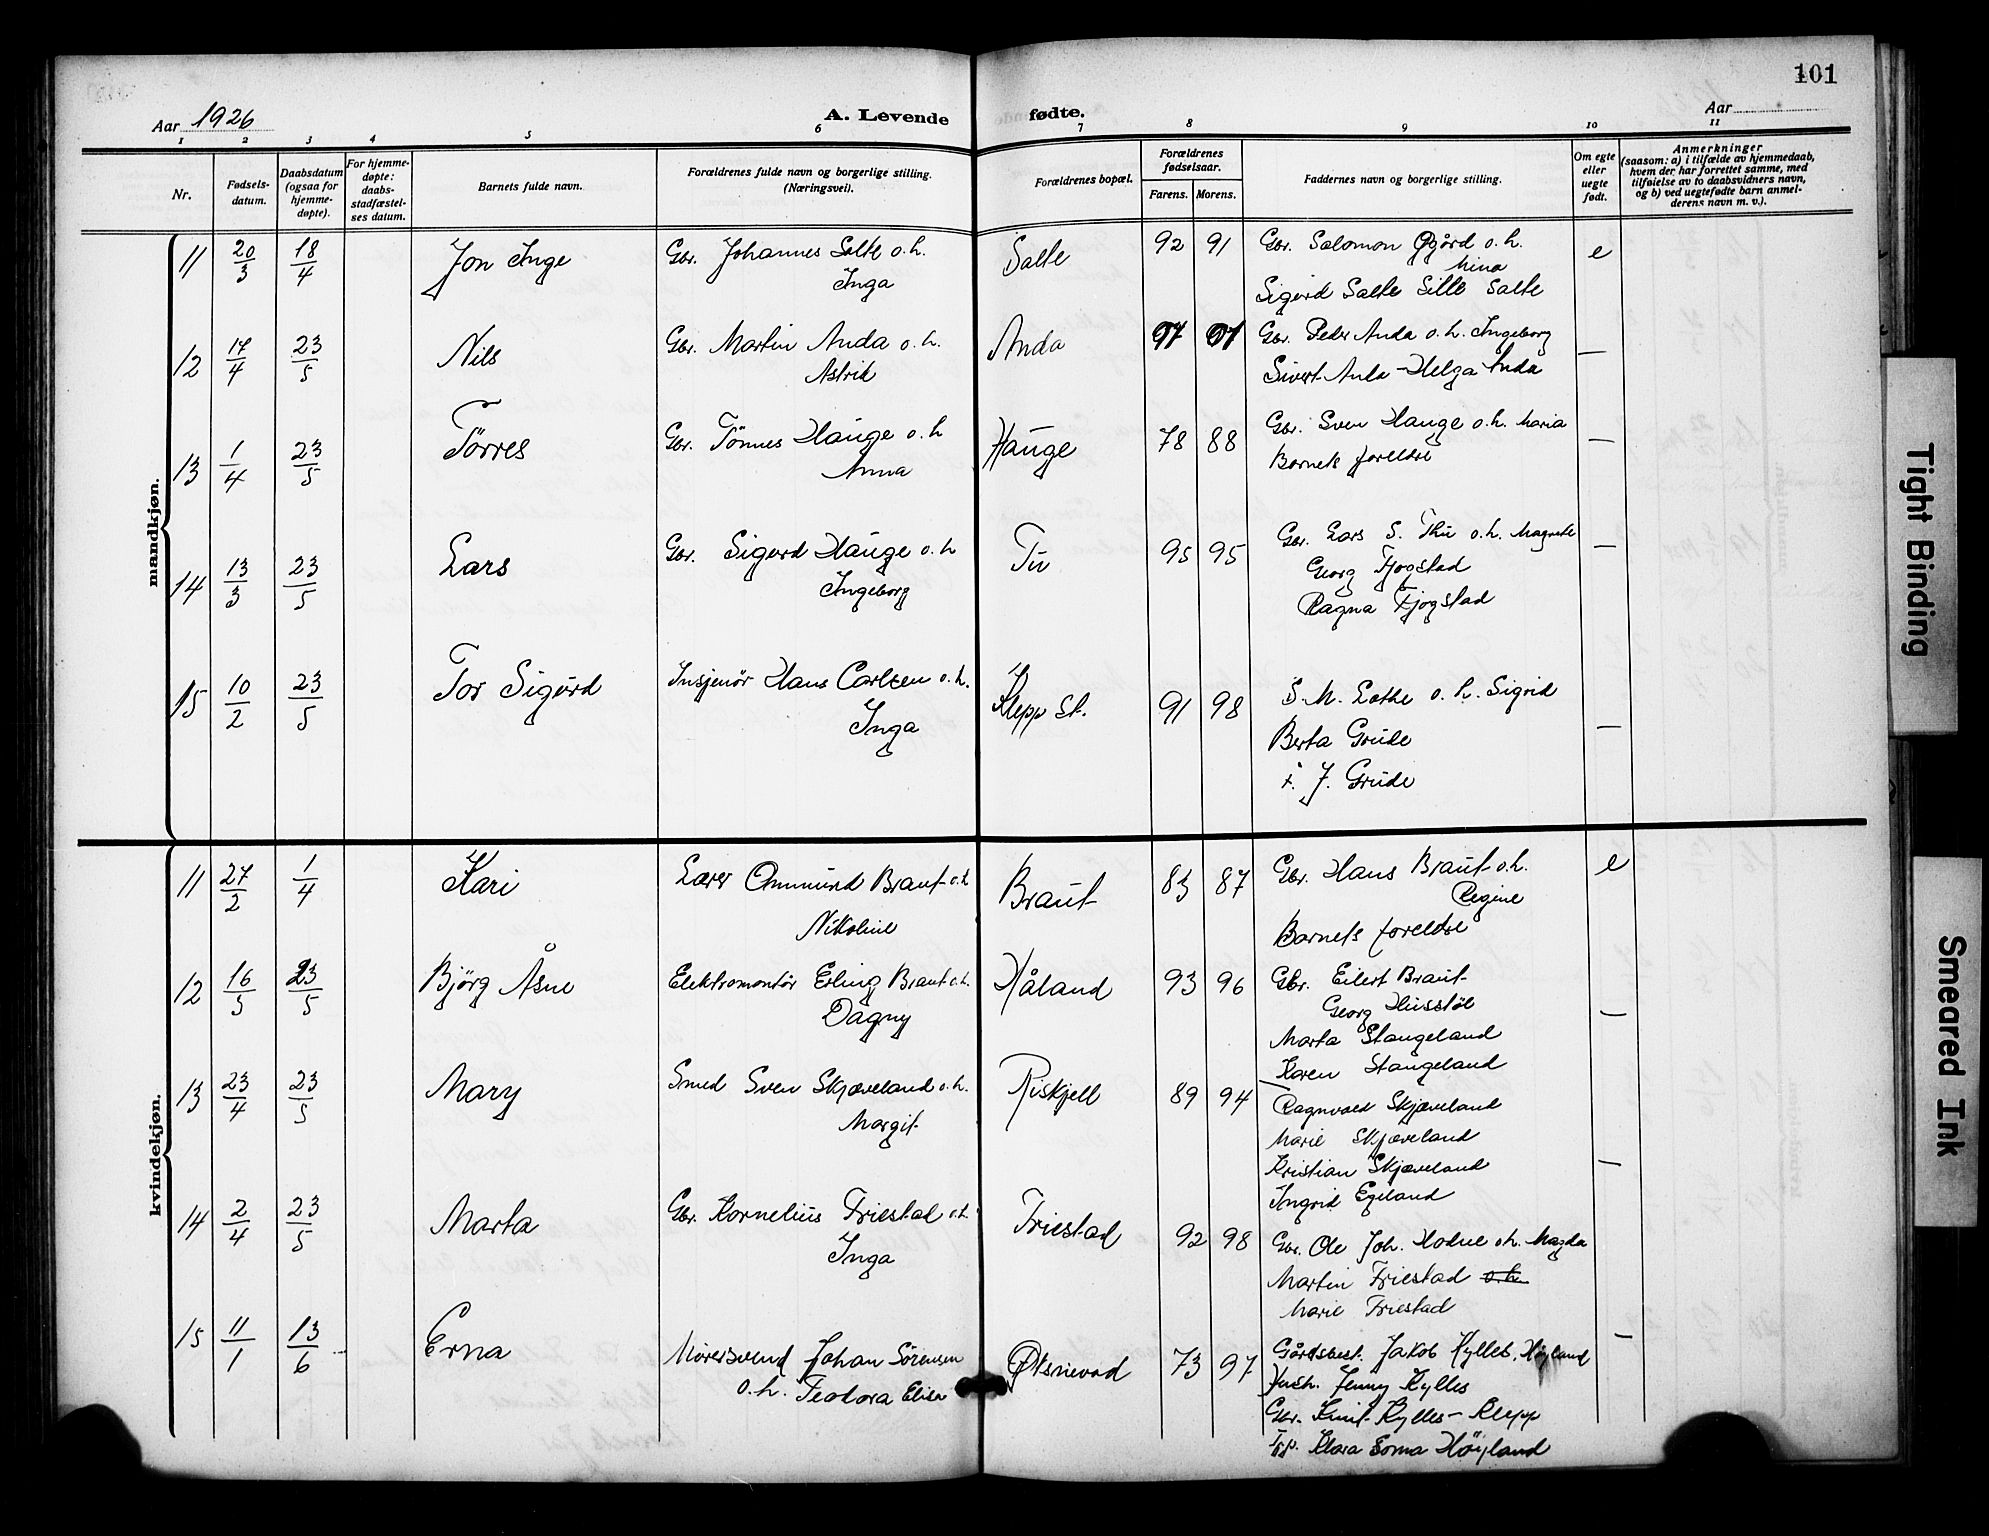 101
Aar 1926
A. Levende fødte.
Aar
1 2 3 4 5 6 7 8 9 10 11
Nr.
Fødsels-datum.
Daabsdatum (ogsaa for hjemme-døpte).
For hjemme-døpte: daabs-stadfæstel-ses datum.
Barnets fulde navn.
Forældrenes fulde navn og borgerlige stilling. (Næringsvei).
Forældrenes bopæl.
Forældrenes fødselsaar.
Farens. Morens.
Faddernes navn og borgerlige stilling.
Om egte eller uegte født.
Anmerkninger
(saasom: a) i tilfælde av hjemmedaab,
hvem der har forrettet samme, med
tilføielse av to daabsvidners navn,
og b) ved uegtefødte barn anmel-
derens navn m. v.).
mandkjøn.
11 20/3 18/4 Jon Inge Gbr. Johannes Salte o.h. Salte 92 91 Gbr. Salomon Øgård o.h. e
Inga Mina
Sigurd Salte Sille Salte
12 17/4 23/5 Nils Gbr. Martin Anda o.h. Anda 97 01 Gbr. Peder Anda o.h. Ingeborg —
Astrid Sivert Anda - Helga Anda
13 1/4 23/5 Tørres Gbr. Tönnes Hauge o.h Hauge 78 88 Gbr. Sven Hauge o.h. Maria —
Anna Barnets foreldre
14 13/3 23/5 Lars Gbr. Sigurd Hauge o.h Tu 95 95 Gbr. Lars S. Thu o.h. Magnele —
Ingeborg Georg Fjogstad
Ragna Fjogstad
15 10/2 23/5 Tor Sigurd Insjenør Hans Carlsen o.h. Klepp St. 91 98 S. M. Lothe o.h. Sigrid —
Inga Berta Grude
J. Grude
kvindekjøn.
11 27/2 1/4 Kari Lærer Ommund Braut o.h Braut 83 87 Gbr. Hans Braut o.h. e
Nikoline Regine
Barnets foreldre
12 16/5 23/5 Björg Åsne Elektromontör Erling Braut o.h. Håland 93 96 Gbr. Eilert Braut —
Dagny Georg Husstöl
Marta Stangeland
Karen Stangeland
13 23/4 23/5 Mary Smed Sven Skjæveland o.h. Riskjell 89 94 Ragnvald Skjæveland —
Margit Marie Skjæveland
Kristian Skjæveland
Ingrid Egeland
14 2/4 23/5 Marta Gbr. Kornelius Friestad o.h. Friestad 92 98 Gbr. Ole Joh. Hodne o.h. Magda
Inga Martin Friestad o.h.
Marie Friestad
15 11/1 13/6 Erna Murersvend Johan Sørensen Øksnevad 73 97 Gårdsbest. Jakob Kylles, Høyland —
o.h. Teodora Elise Jenny Kylles
Gbr. Knut Kylles - Klepp
Klara Soma Höyland
Tight Binding
Smeared Ink